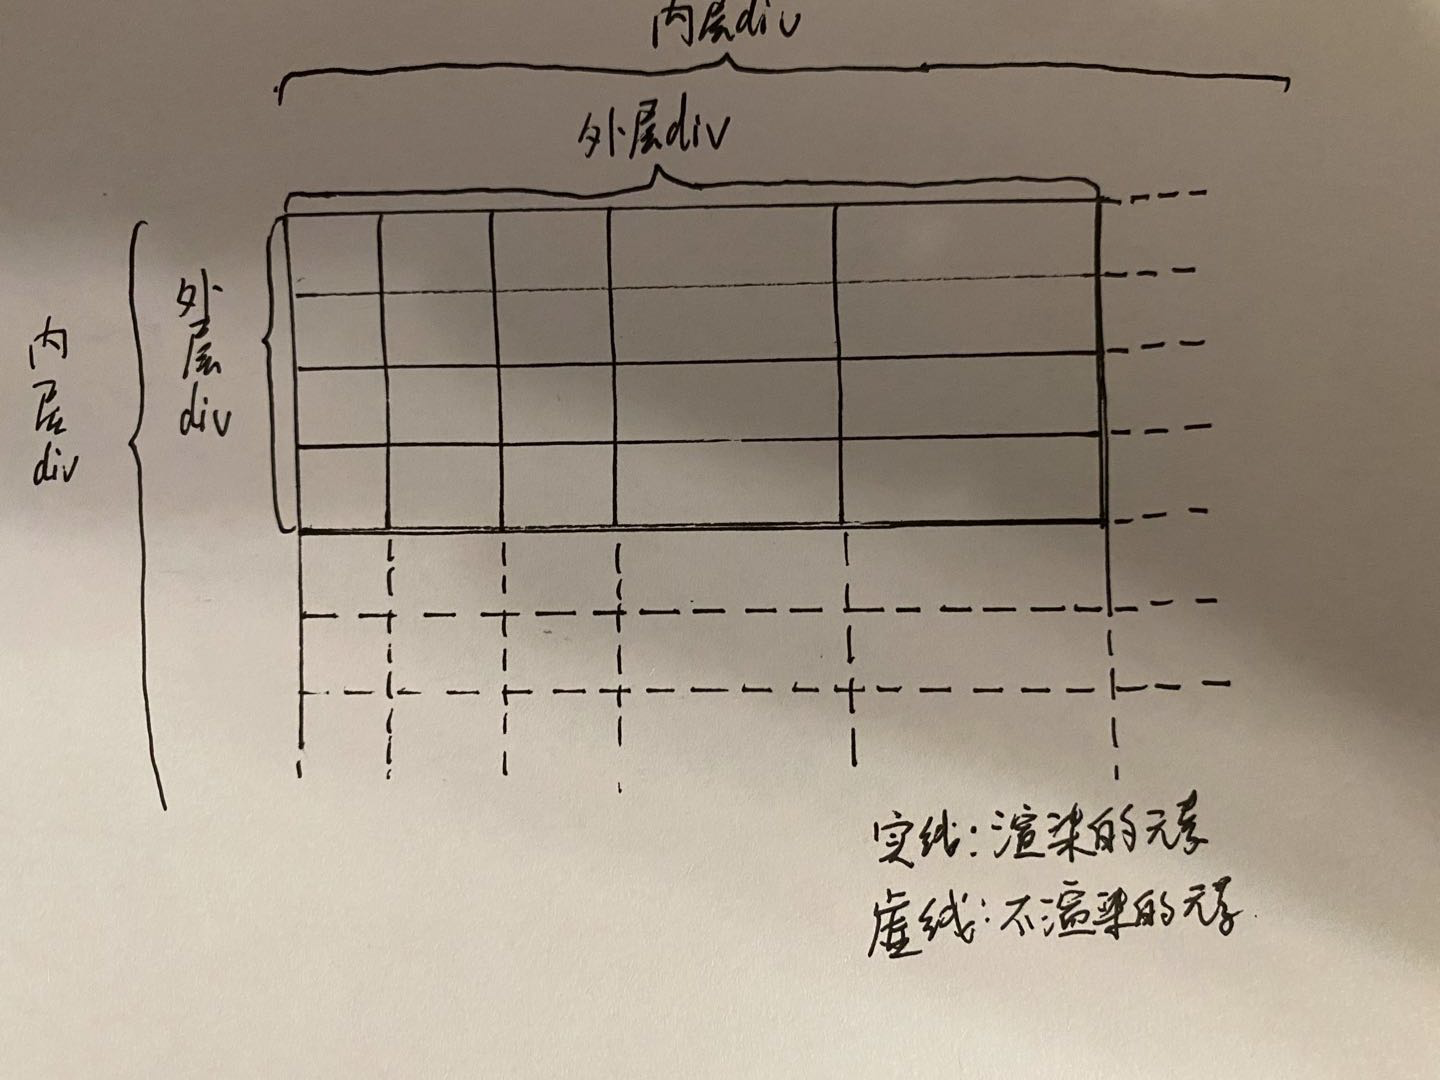 内层div
外层div
外层div
内层div
实线:渲染的元素
虚线:不渲染的元素